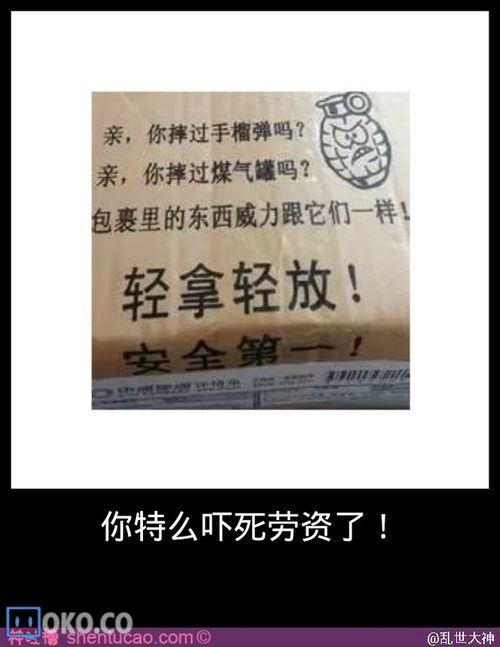 亲，你摔过手榴弹吗？
亲，你摔过煤气罐吗？
包裹里的东西威力跟它们一样！
轻拿轻放！
安全第一！
你特么吓死劳资了！
OKO.CO
神吐槽 shentucao.com©
@乱世大神